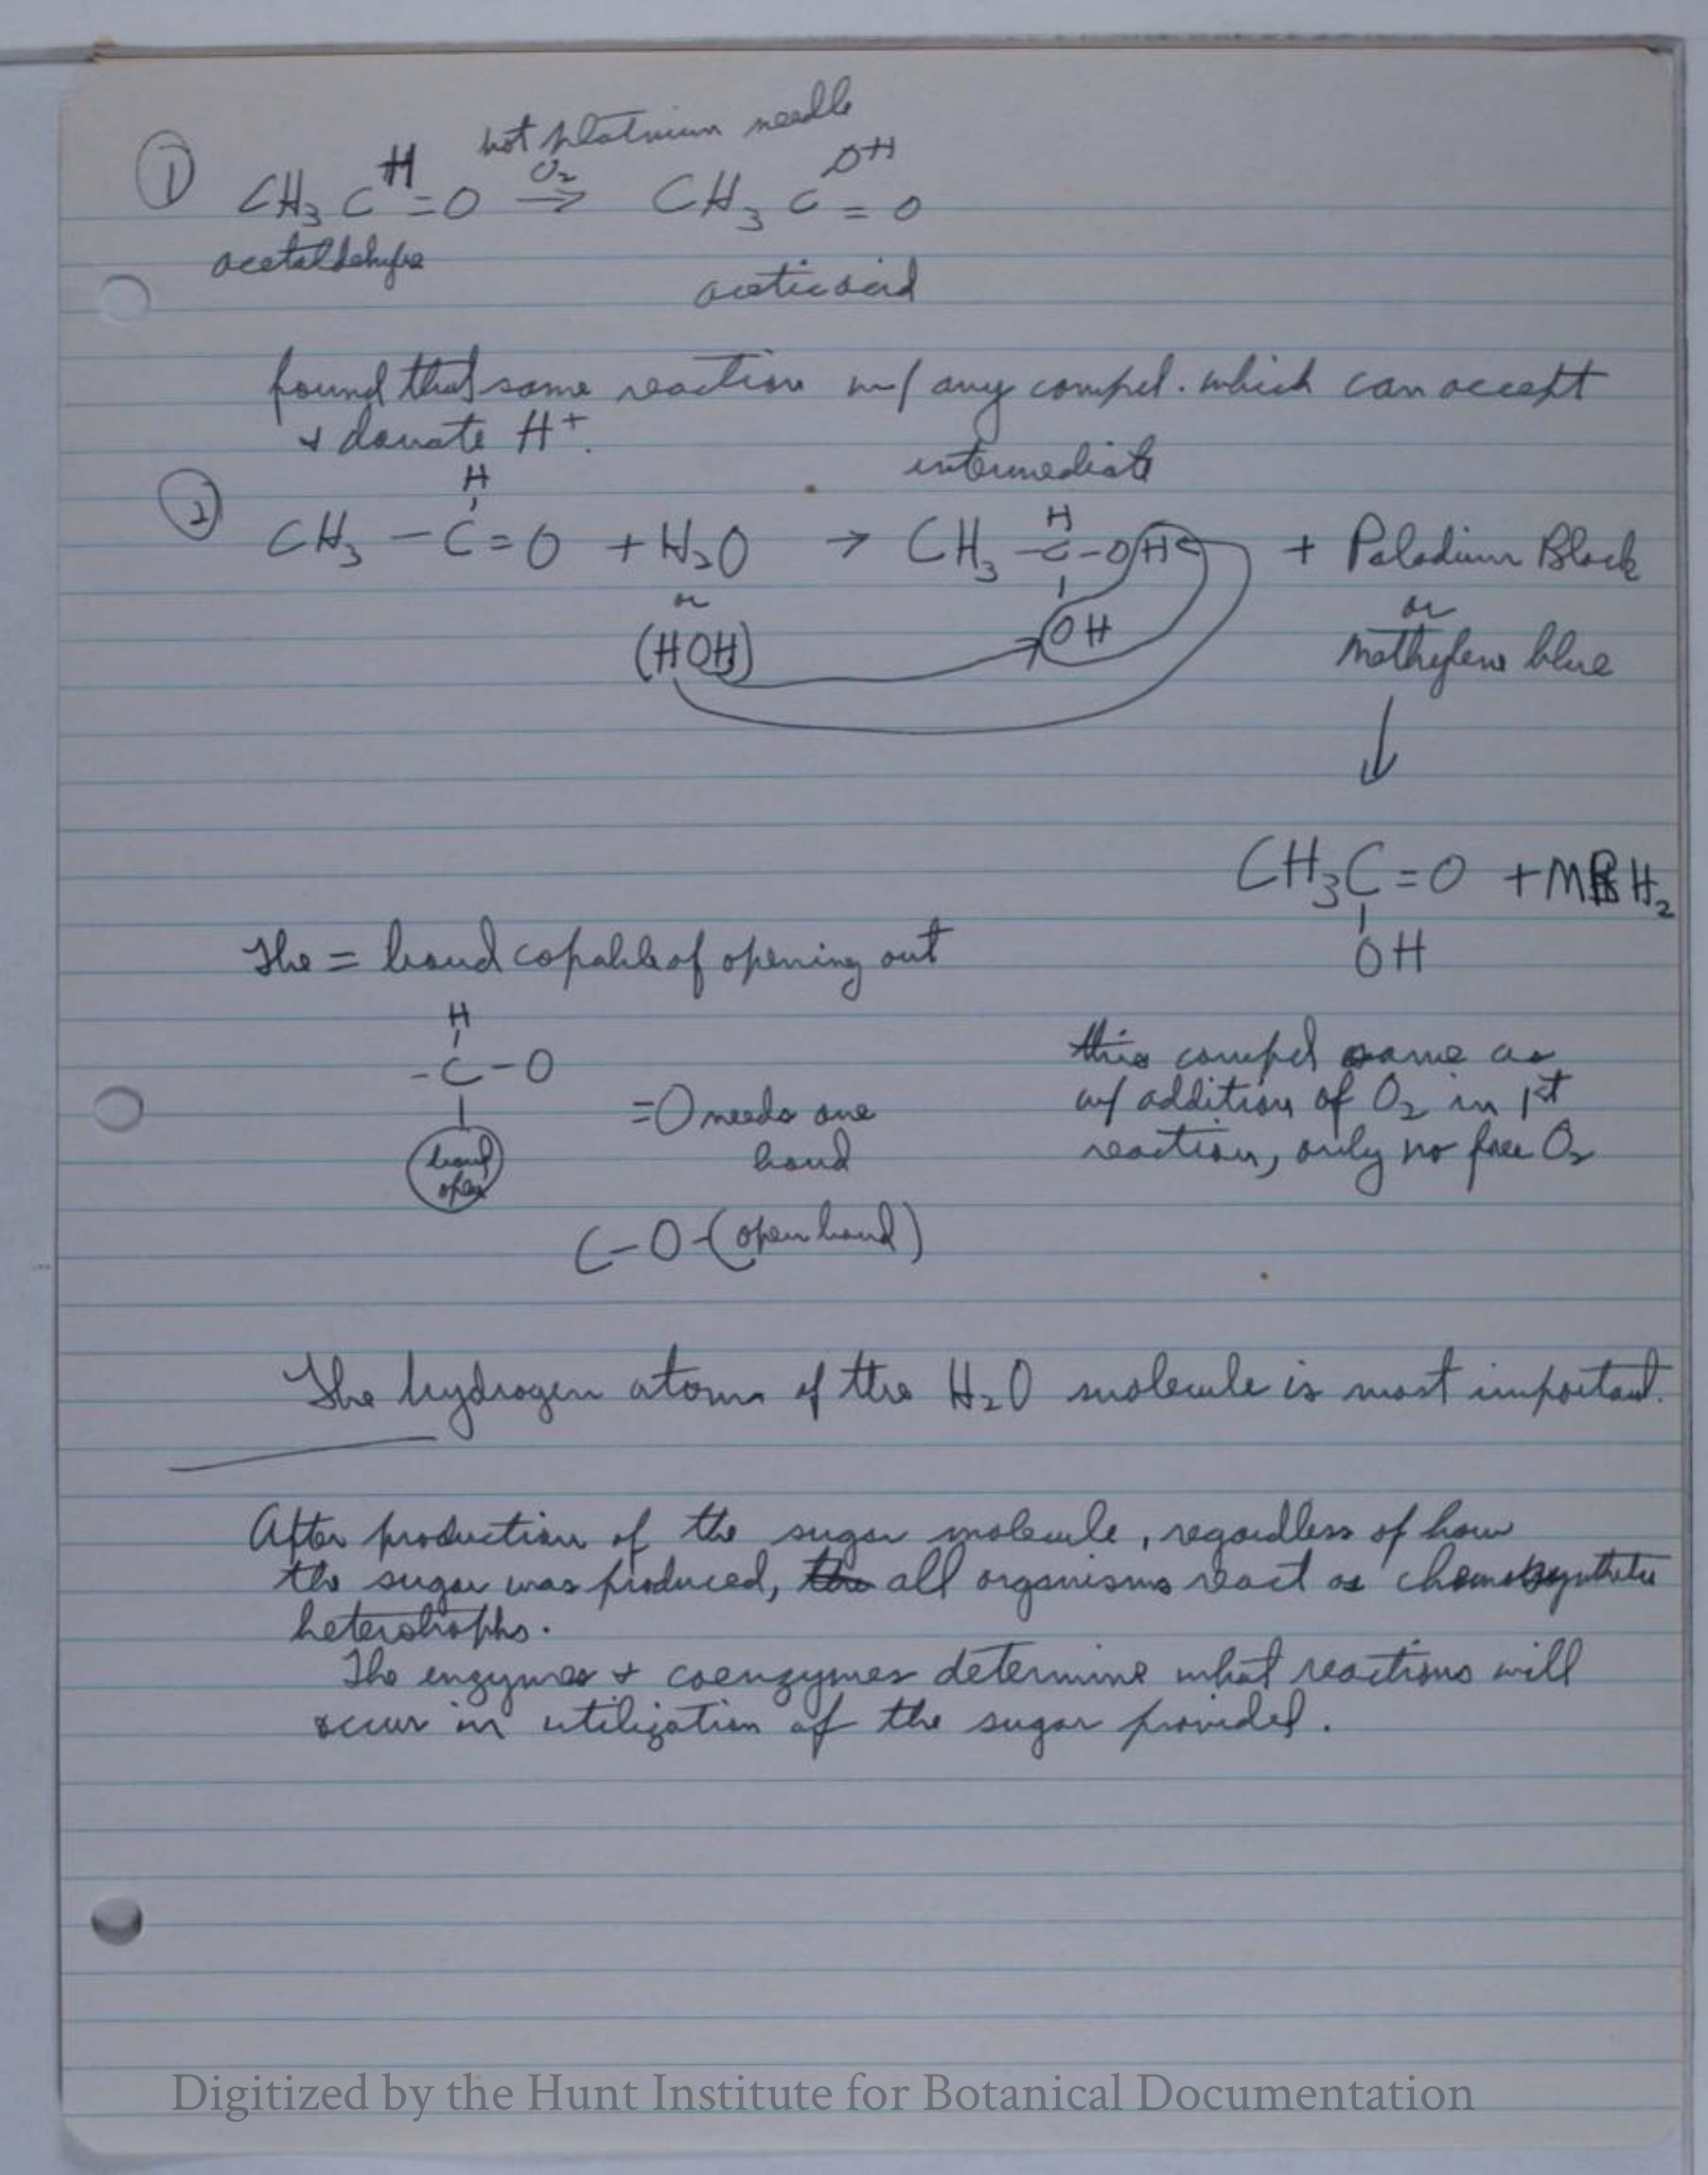 ① CH₃C=O O₂→ CH₃C=O
H hot platnium needle OH
acetaldehyde
acetic acid
found that same reaction w/ any compd. which can accept
+ donate H⁺.
intermediate
H
② CH₃ – C = O + H₂O → CH₃ – C – OH + Paladium Black
H
or
(HOH)
OH
or
Methylene blue
↓
CH₃C=O + MBH₂
OH
The = bond capable of opening out
H
-C-O
bond
open
=O needs one
bond
C-O-(open bond)
this compd same as
w/ addition of O₂ in 1st
reaction, only no free O₂
The hydrogen atoms of the H₂O molecule is most important.
After production of the sugar molecule, regardless of how
the sugar was produced, the all organisms react as chemosynthetic
heterotrophs.
The enzymes + coenzymes determine what reactions will
occur in utilization of the sugar provided.
Digitized by the Hunt Institute for Botanical Documentation